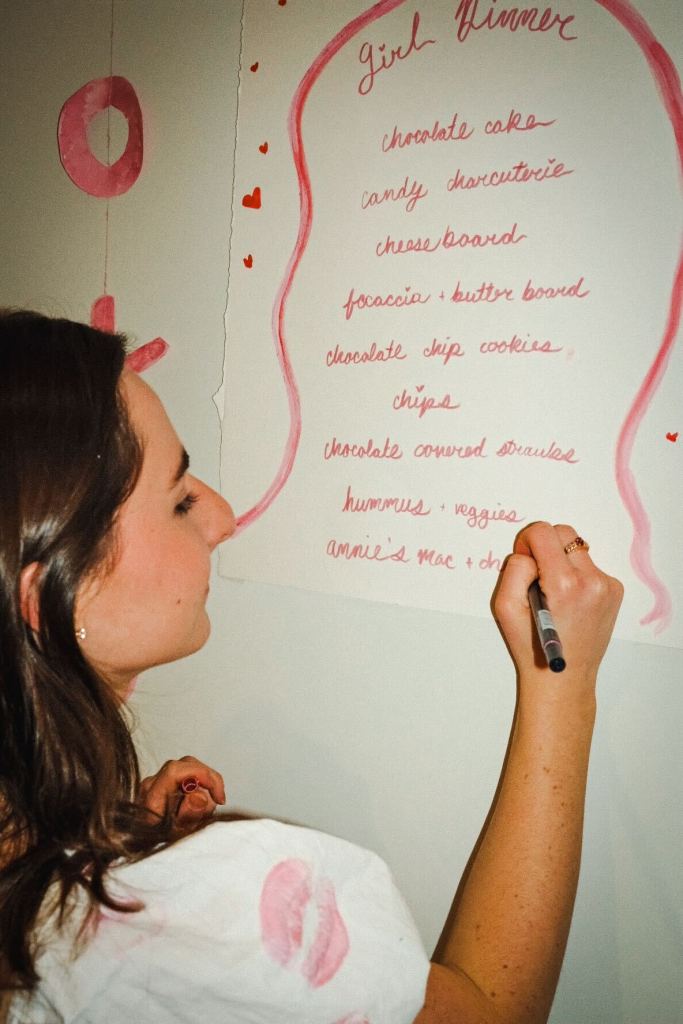 Girl Dinner
chocolate cake
candy charcuterie
cheese board
focaccia + butter board
chocolate chip cookies
chips
chocolate covered strawbs
hummus + veggies
annie's mac + ch